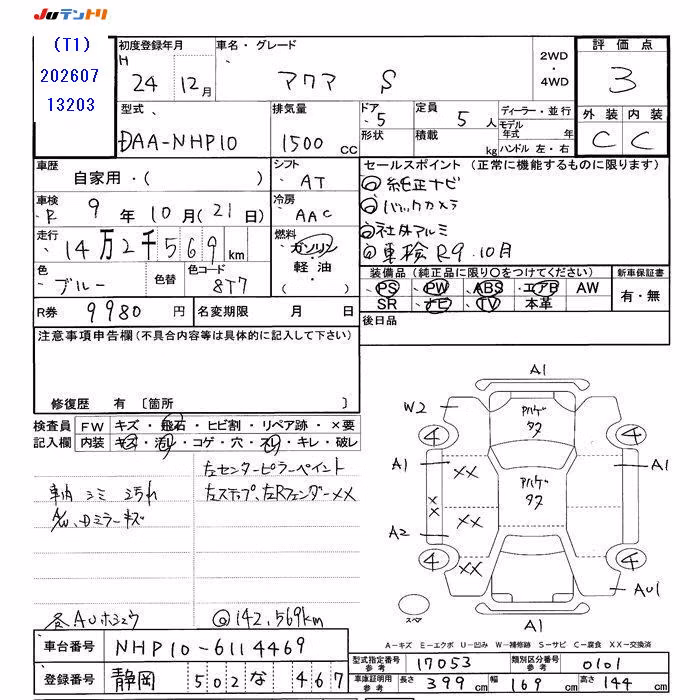 JUテントリ
(T1)
202607
13203
初度登録年月
H
24 12月
車名・グレード
アクア S
2WD
・
4WD
評価点
3
外装 内装
C C
型式
DAA-NHP10
排気量
1500 CC
ドア
5
形状
定員
5 人
積載 kg
ディーラー・並行
モデル年式 年
ハンドル 左・右
車歴
自家用・( )
シフト
AT
車検
R 9 年 10 月(21 日)
冷房
AAC
走行
14万2千569 km
燃料
ガソリン
軽油
( )
色
ブルー
色替
色コード
8T7
R券
9980 円
名変期限 月 日
セールスポイント (正常に機能するものに限ります)
◎純正ナビ
◎バックカメラ
◎社外アルミ
◎車検R9.10月
装備品(純正品に限り○をつけてください)
PS ・PW ・ABS ・エアB AW
SR ナビ ・TV ・本革
新車保証書
有・無
後日品
注意事項申告欄(不具合内容等は具体的に記入して下さい)
修復歴 有 〔箇所 〕
検査員記入欄
FW キズ・飛石・ヒビ割・リペア跡・×要
内装 キズ・汚れ・コゲ・穴・スレ・キレ・破レ
左センターピラーペイント
車内 シミ 汚れ
左ステップ、左Rフェンダー××
A/W、Dミラーキズ
各AUホシュウ
◎142,569km
A1
W2
Aハゲ
タス
4 4
A1 A1
××
Aハゲ
タス
××
××
A2
4 4
××
AU1
A1
スペア
A-キズ E-エクボ U-凹み W-補修跡 S-サビ C-腐食 XX-交換済
車台番号 NHP10-6114469
登録番号 静岡 502 な 467
型式指定番号 参考 17053
類別区分番号 参考 0101
車体証明用 参考 長さ 399 cm 幅 169 cm 高さ 144 cm